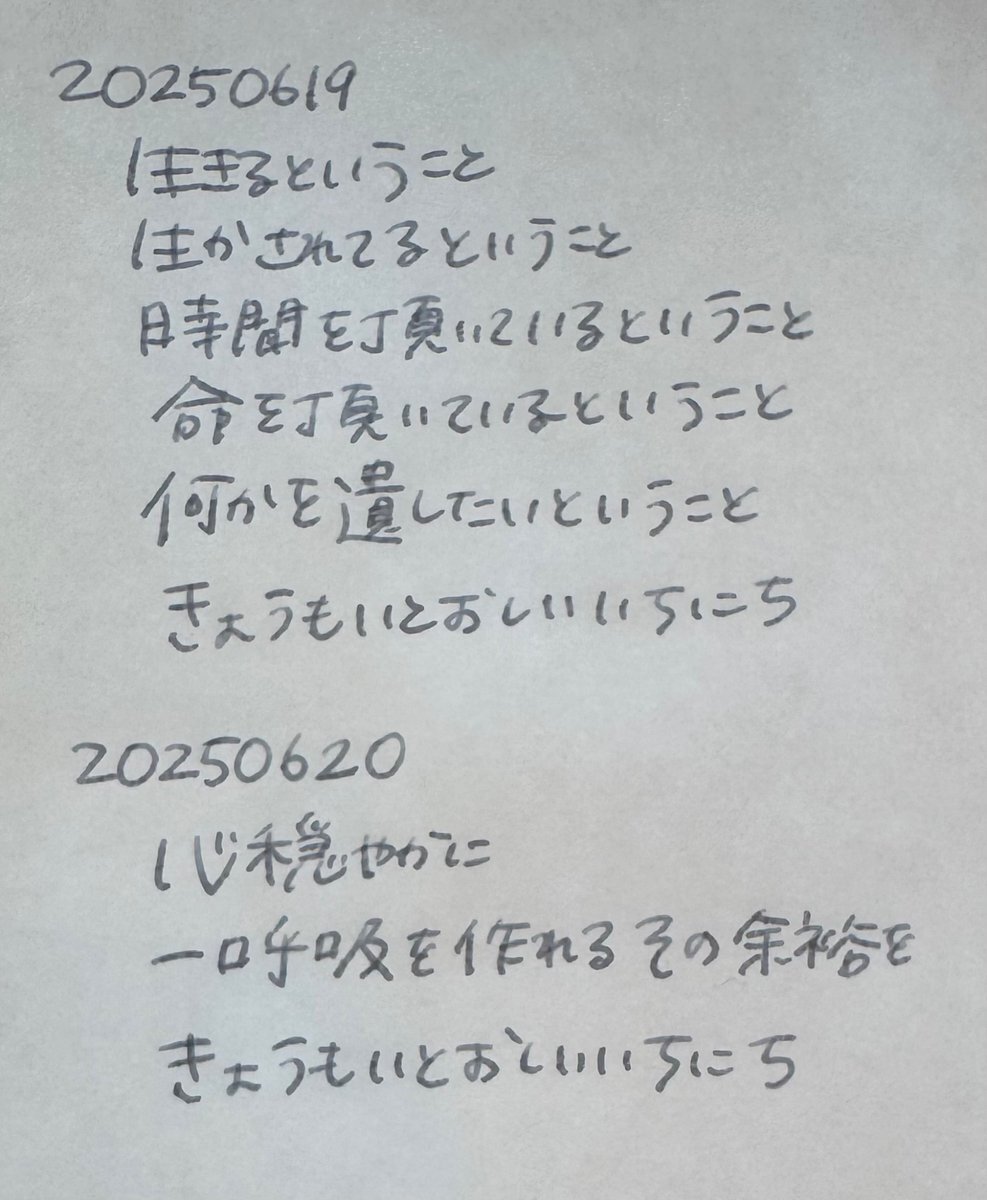 20250619
生きるということ
生かされてるということ
時間を頂いているということ
命を頂いているということ
何かを遺したいということ
きょうもいとおしいいちにち
20250620
心穏やかに
一呼吸を作れるその余裕を
きょうもいとおしいいちにち